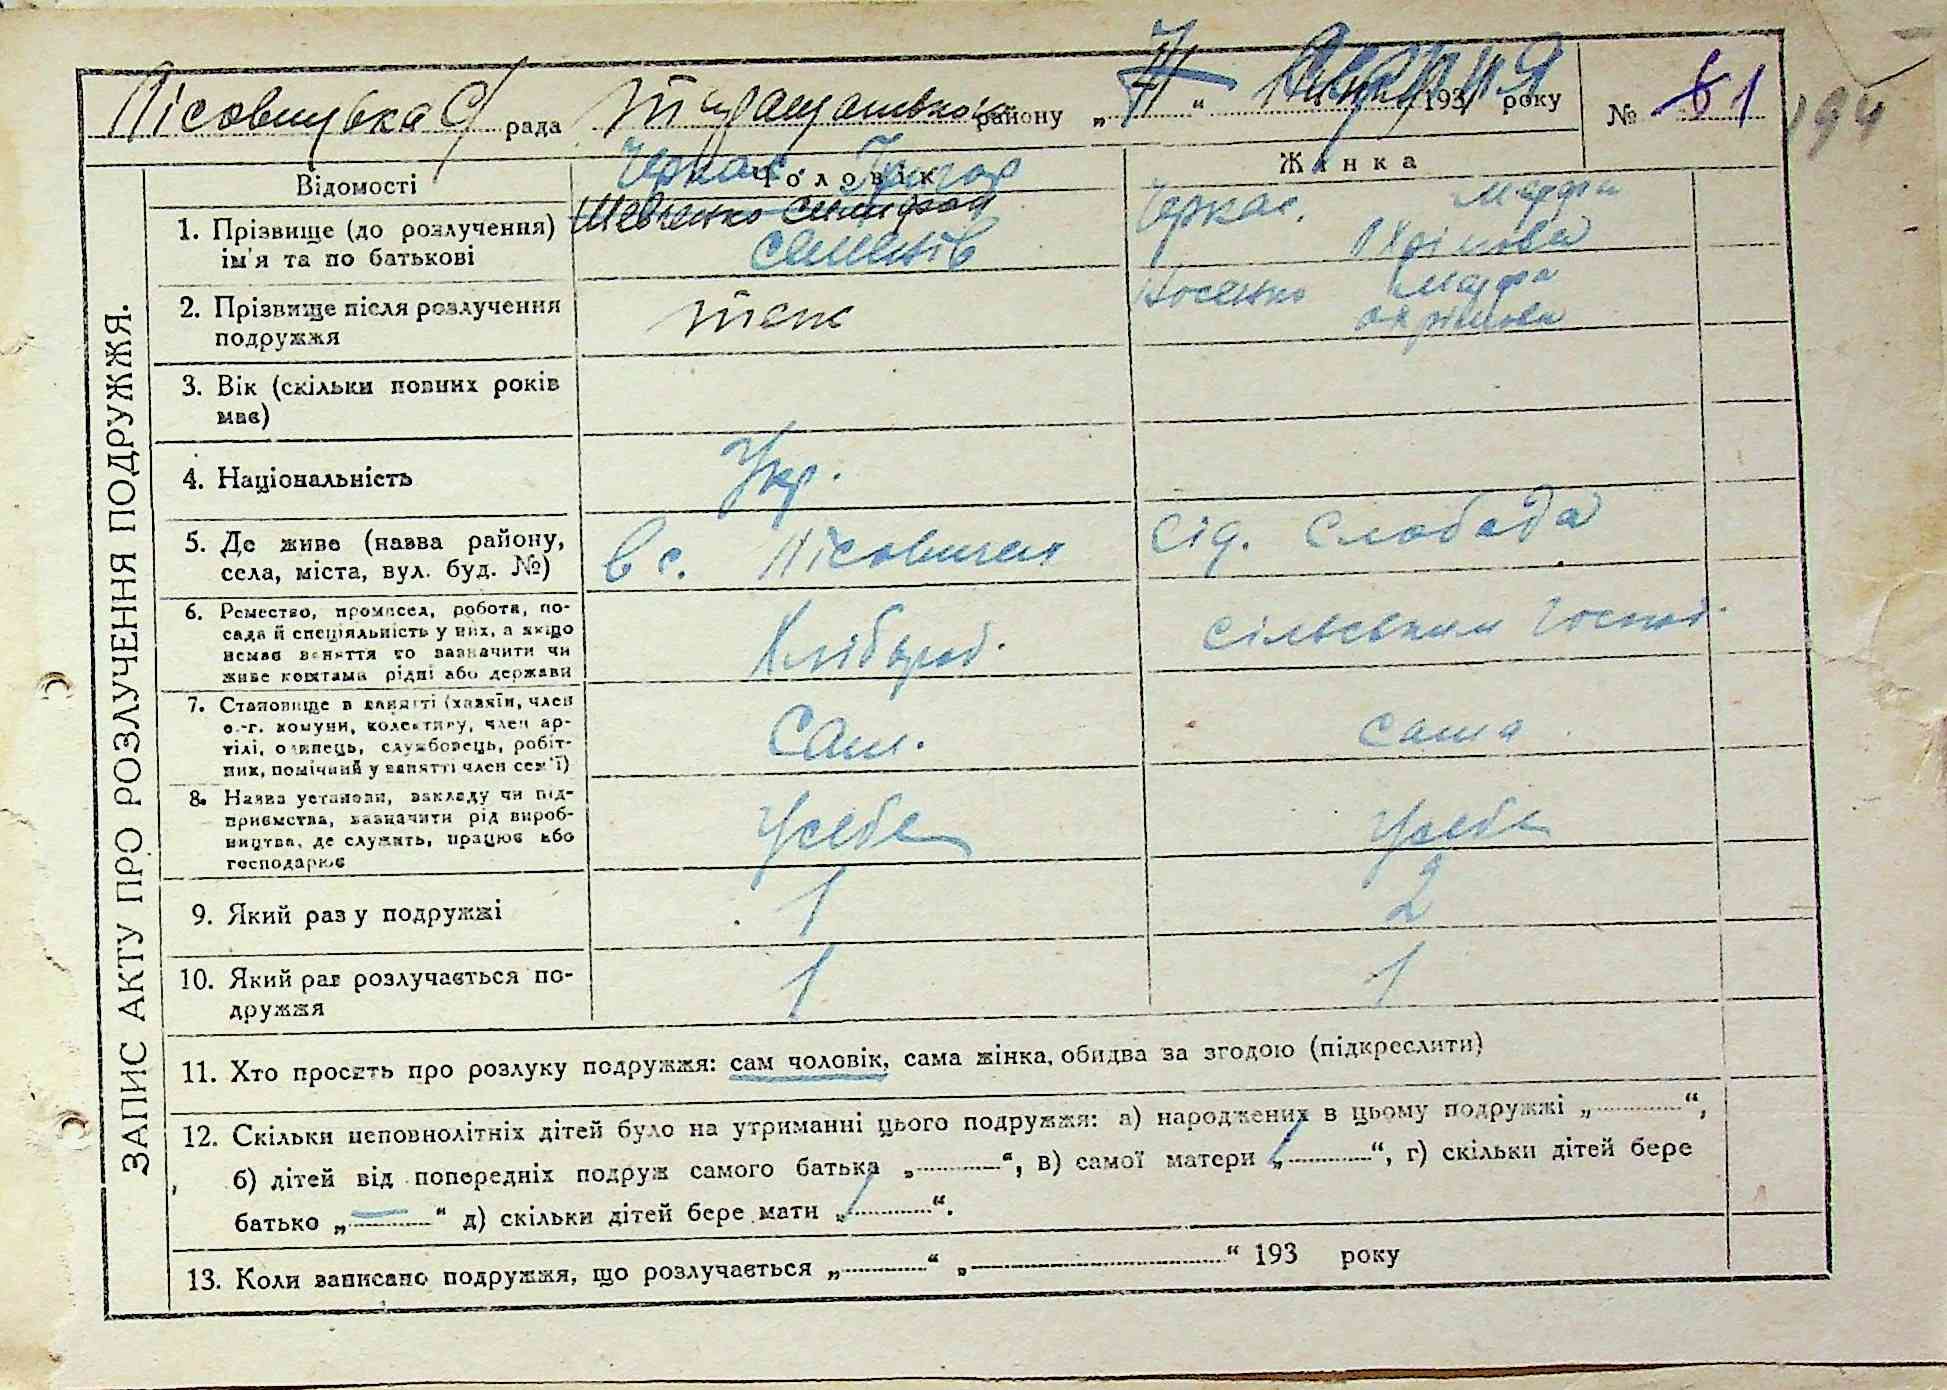 Лісовицька С/ рада Таращанського району „ 7 “ Августа 193 року № 61
194
ЗАПИС АКТУ ПРО РОЗЛУЧЕННЯ ПОДРУЖЖЯ.
Відомості Чоловік Жінка
Черкас. Григор
1. Прізвище (до розлучення) Шевченко Черкас. Марфа
ім'я та по батькові Семенів Охрімова
2. Прізвище після розлучення теж Носенко Марфа
подружжя Охрімова
3. Вік (скільки повних років
має)
4. Національність Укр.
5. Де живе (назва району, в с. Лісовичах Сід. Слобода
села, міста, вул. буд. №)
6. Ремество, промисел, робота, по-
сада й спеціяльність у них, а якщо Хлібороб. сільським господ.
немає заняття то зазначити чи
живе коштами рідні або держави
7. Становище в занятті (хазяїн, член
с.-г. комуни, колективу, член ар- Сам. сама
тілі, одинець, службовець, робіт-
ник, помічний у занятті член сем'ї)
8. Назва установи, закладу чи під-
приємства, зазначити рід вироб- У себе У себе
ництва, де служить, працює або
господарює
9. Який раз у подружжі 1 2
10. Який раз розлучається по- 1 1
дружжя
11. Хто просить про розлуку подружжя: сам чоловік, сама жінка, обидва за згодою (підкреслити)
12. Скільки неповнолітніх дітей було на утриманні цього подружжя: а) народжених в цьому подружжі „ “,
б) дітей від попередніх подруж самого батька „ “, в) самої матери „ 1 “, г) скільки дітей бере
батько „ — “ д) скільки дітей бере мати „ 1 “.
13. Коли записано подружжя, що розлучається „ “ „ “ 193 року